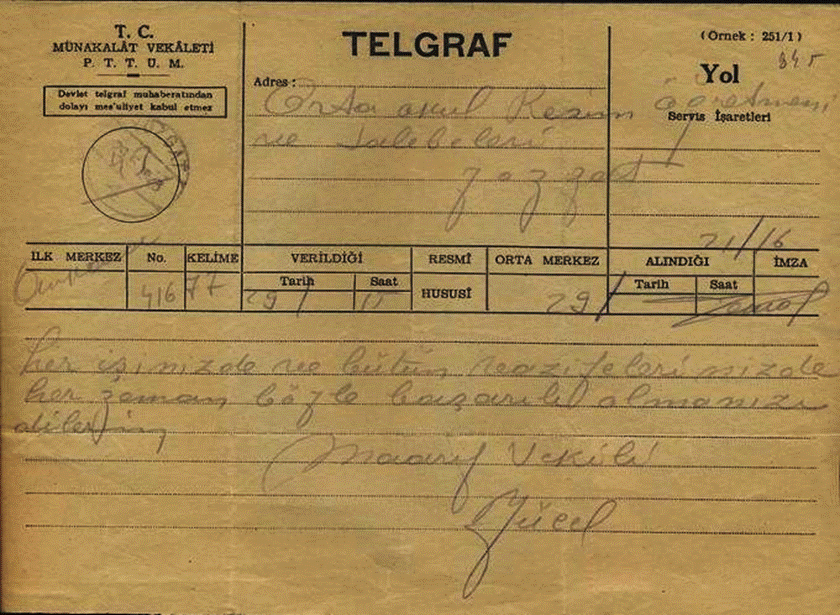 T. C.
MÜNAKALÂT VEKÂLETİ
P. T. T. U. M.
Devlet telgraf muhaberatından
dolayı mes'uliyet kabul etmez
TELGRAF
(Örnek : 251/1)
Yol
Servis İşaretleri
Adres :
Orta okul Resim Öğretmeni
ve talebeleri
Yozgat
İLK MERKEZ No. KELİME VERİLDİĞİ RESMÎ ORTA MERKEZ ALINDIĞI İMZA
Tarih Saat HUSUSİ Tarih Saat
416 77 29 29
21/16
her işinizde ve bütün vazifelerinizde
her zaman böyle başarılı olmanızı
dilerim
Maarif Vekili
Yücel